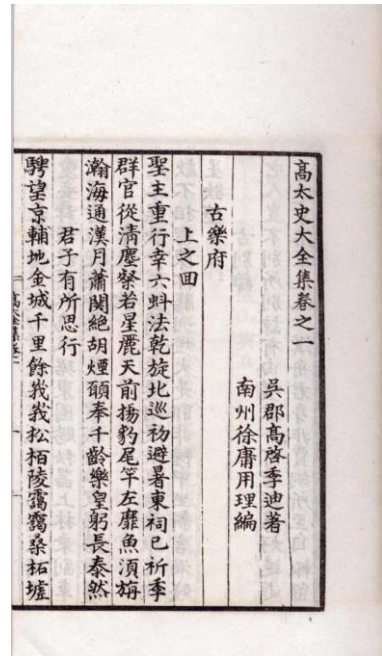 高太史大全集卷之一
吳郡高啓季迪著
南州徐庸用理編
古樂府
上之回
聖主重行幸六蚪法乾旋北巡初避暑東祠已祈季
群官從清塵粲若星麗天前揚豹尾竿左靡魚湏旃
瀚海通漢月蕭関絶胡煙願奉千齡樂皇躬長泰然
君子有所思行
騁望京輔地金城千里餘峩峩松栢陵靄靄桑柘墟